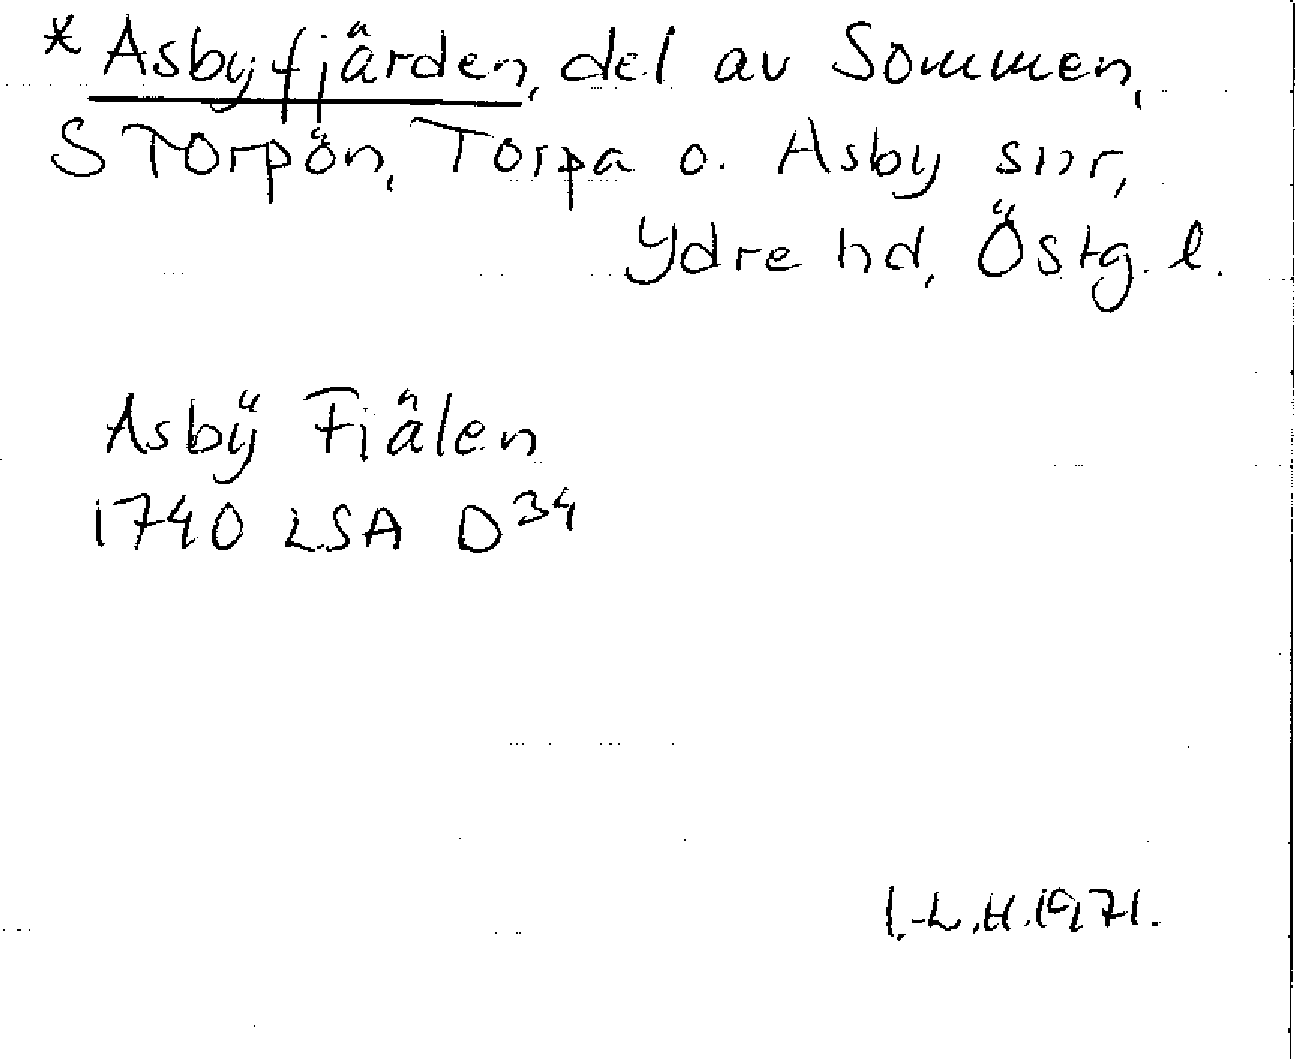 * Asbyfjärden, del av Sommen,
S Torpön, Torpa o. Asby snr,
Ydre hd, Östg. l.
Asbÿ Fiälen
1740 LSA D34
I.-L. H. 1971.